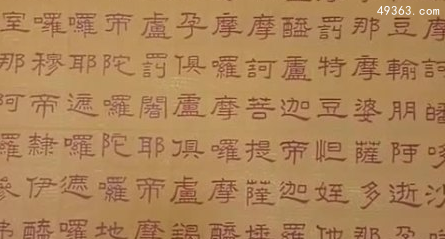 摩訶皤哆沙
豆輸朋阿逝孕
那摩婆薩多那
罰特豆怛姪他
醯盧迦帝迦羅
摩訶菩提薩埵
摩囉摩囉摩醯
孕俱盧俱盧羯
盧罰闍耶帝摩
帝陀囉陀囉地
囉耶遮囉遮囉
囉穆帝隸伊醯
室那阿囉參弗
49363.com